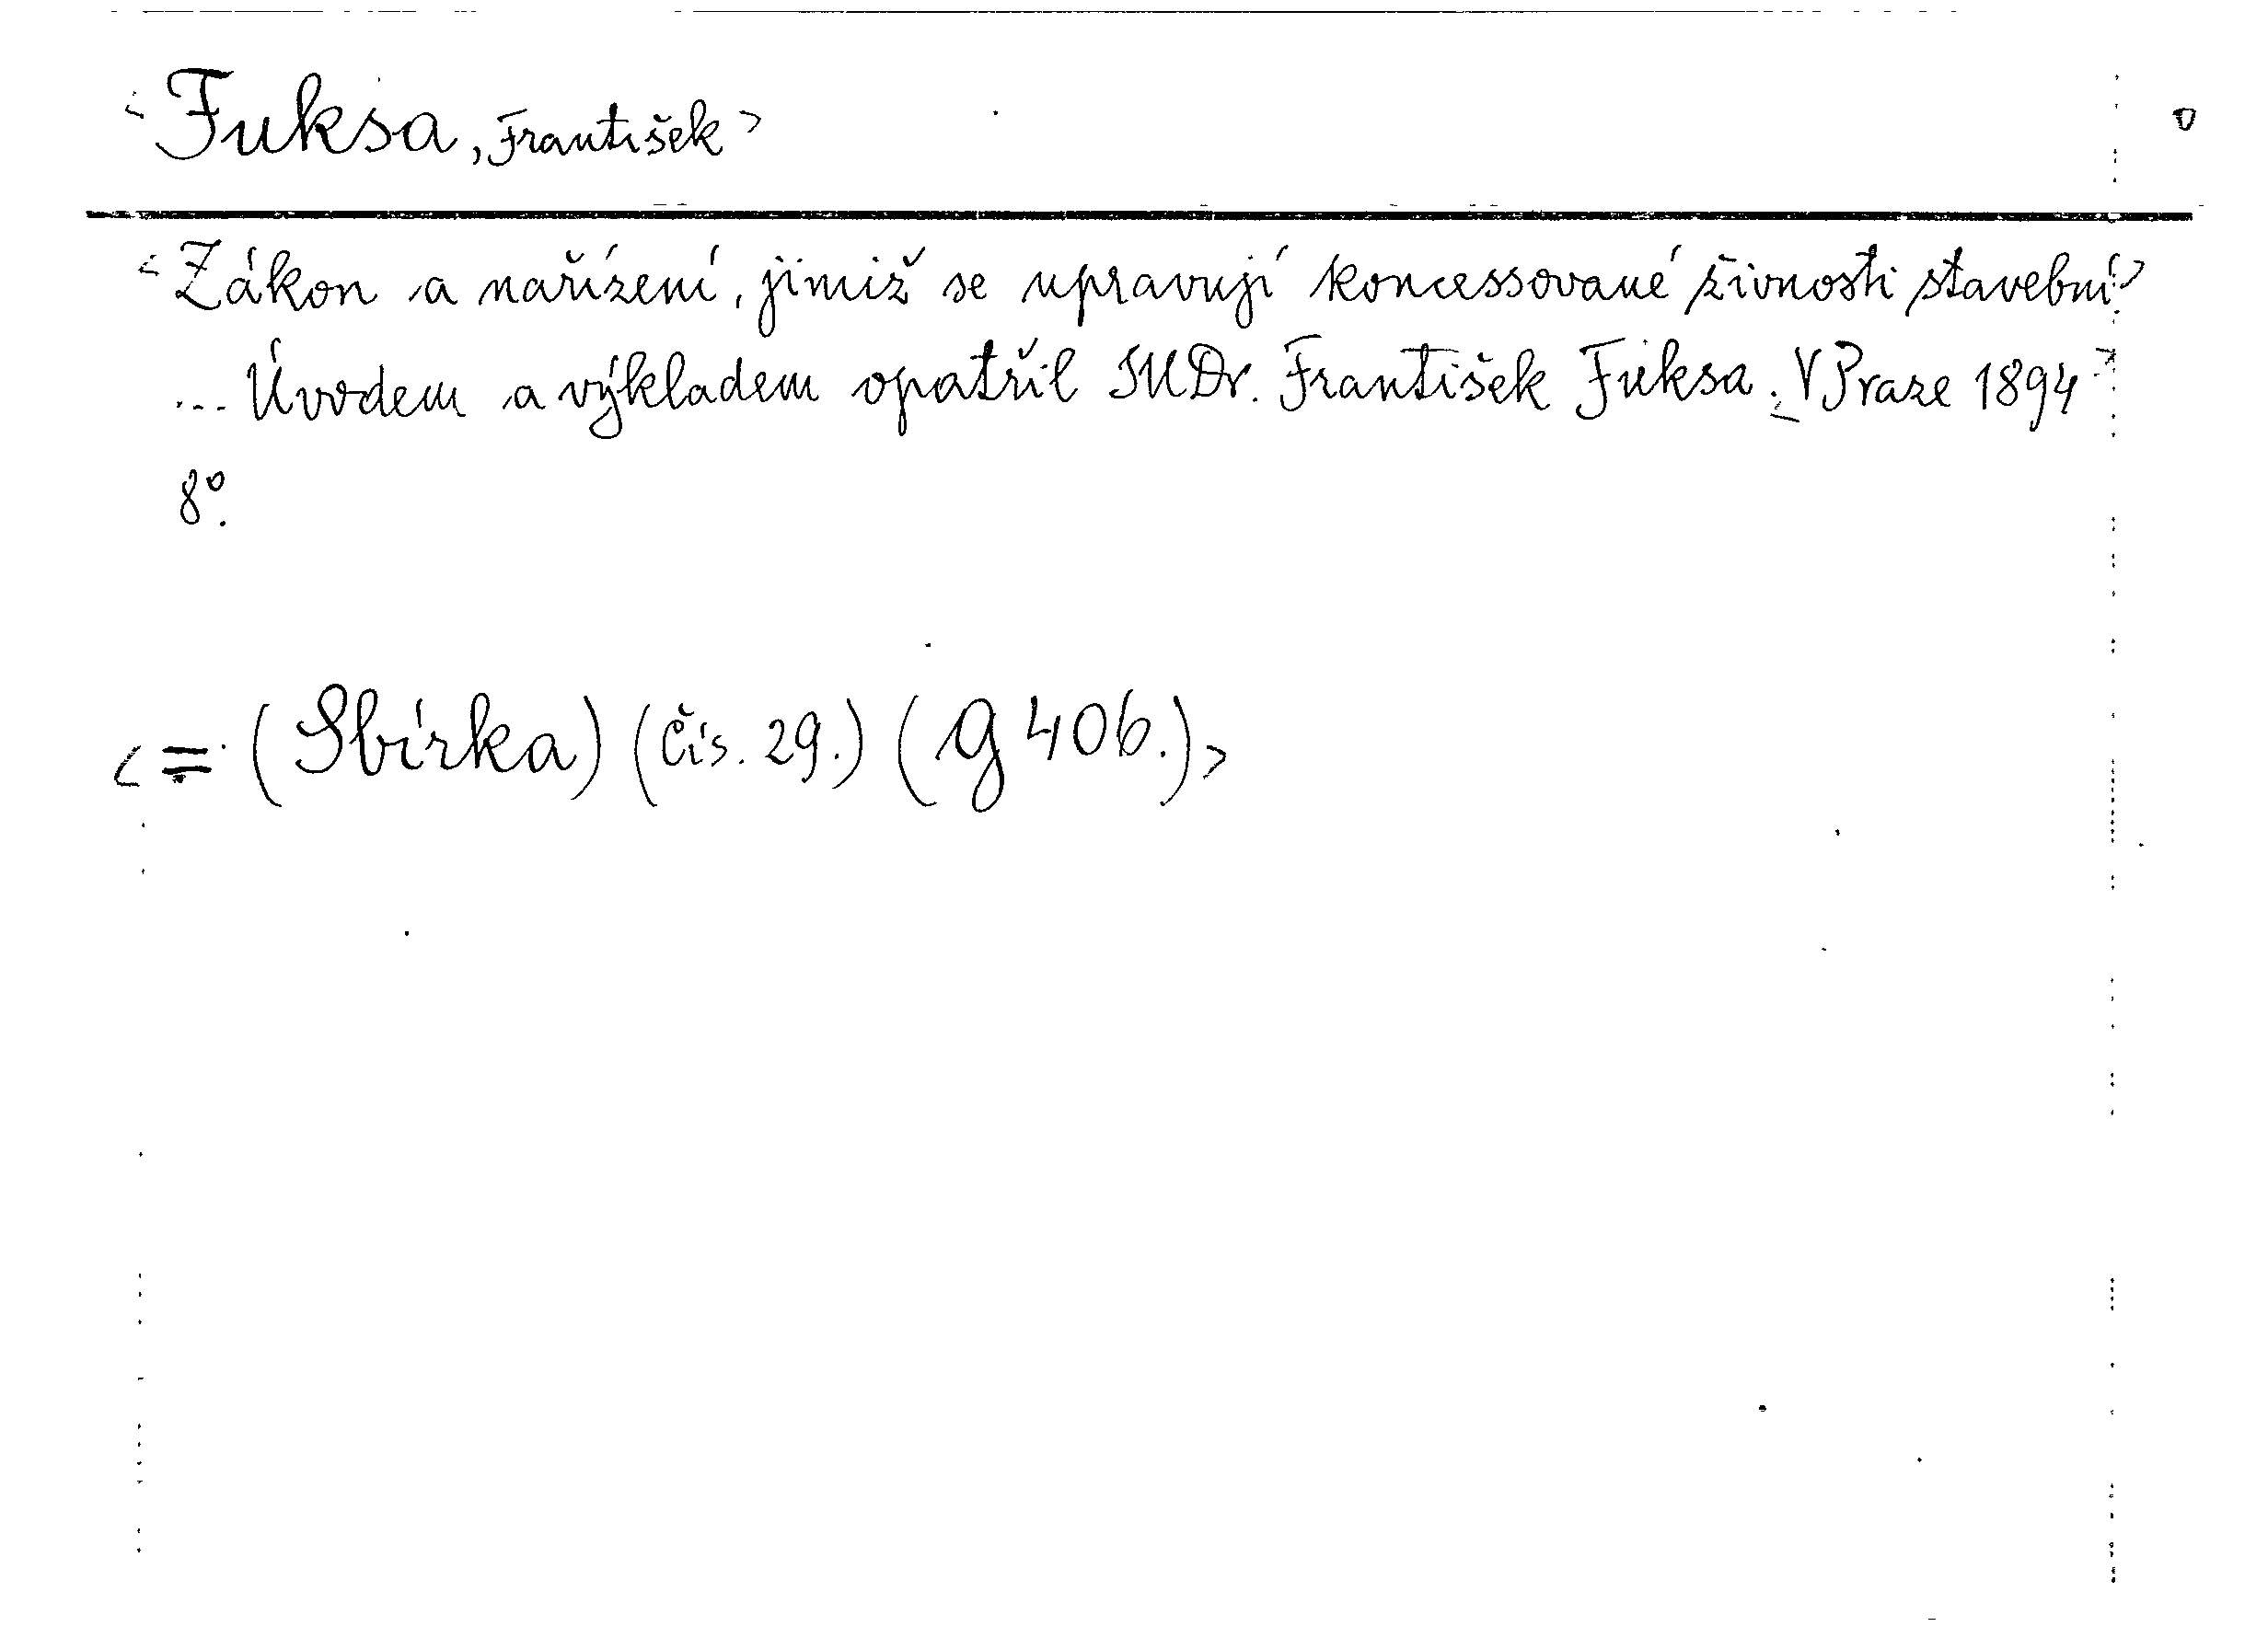 <Fuksa, František>
<Zákon a nařízení, jimiž se upravují koncessované živnosti stavební>
... Úvodem a výkladem opatřil JUDr. František Fuksa. <V Praze 1894>
8°.
<= (Sbírka) (čís. 29.) (g 406.)>